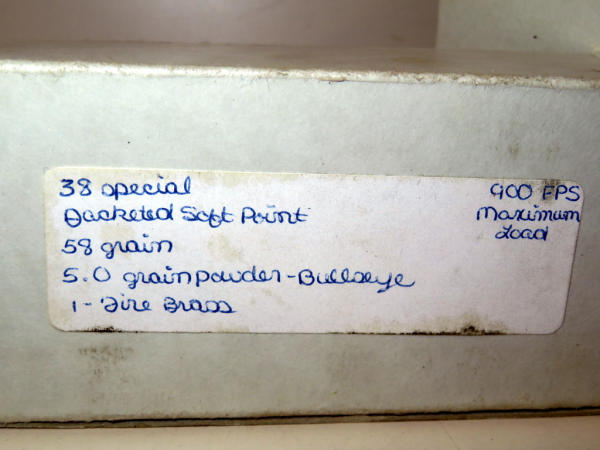 38 special
Jacketed Soft Point
58 grain
5.0 grain powder - Bullseye
1 - Fire Brass
900 FPS
Maximum
Load